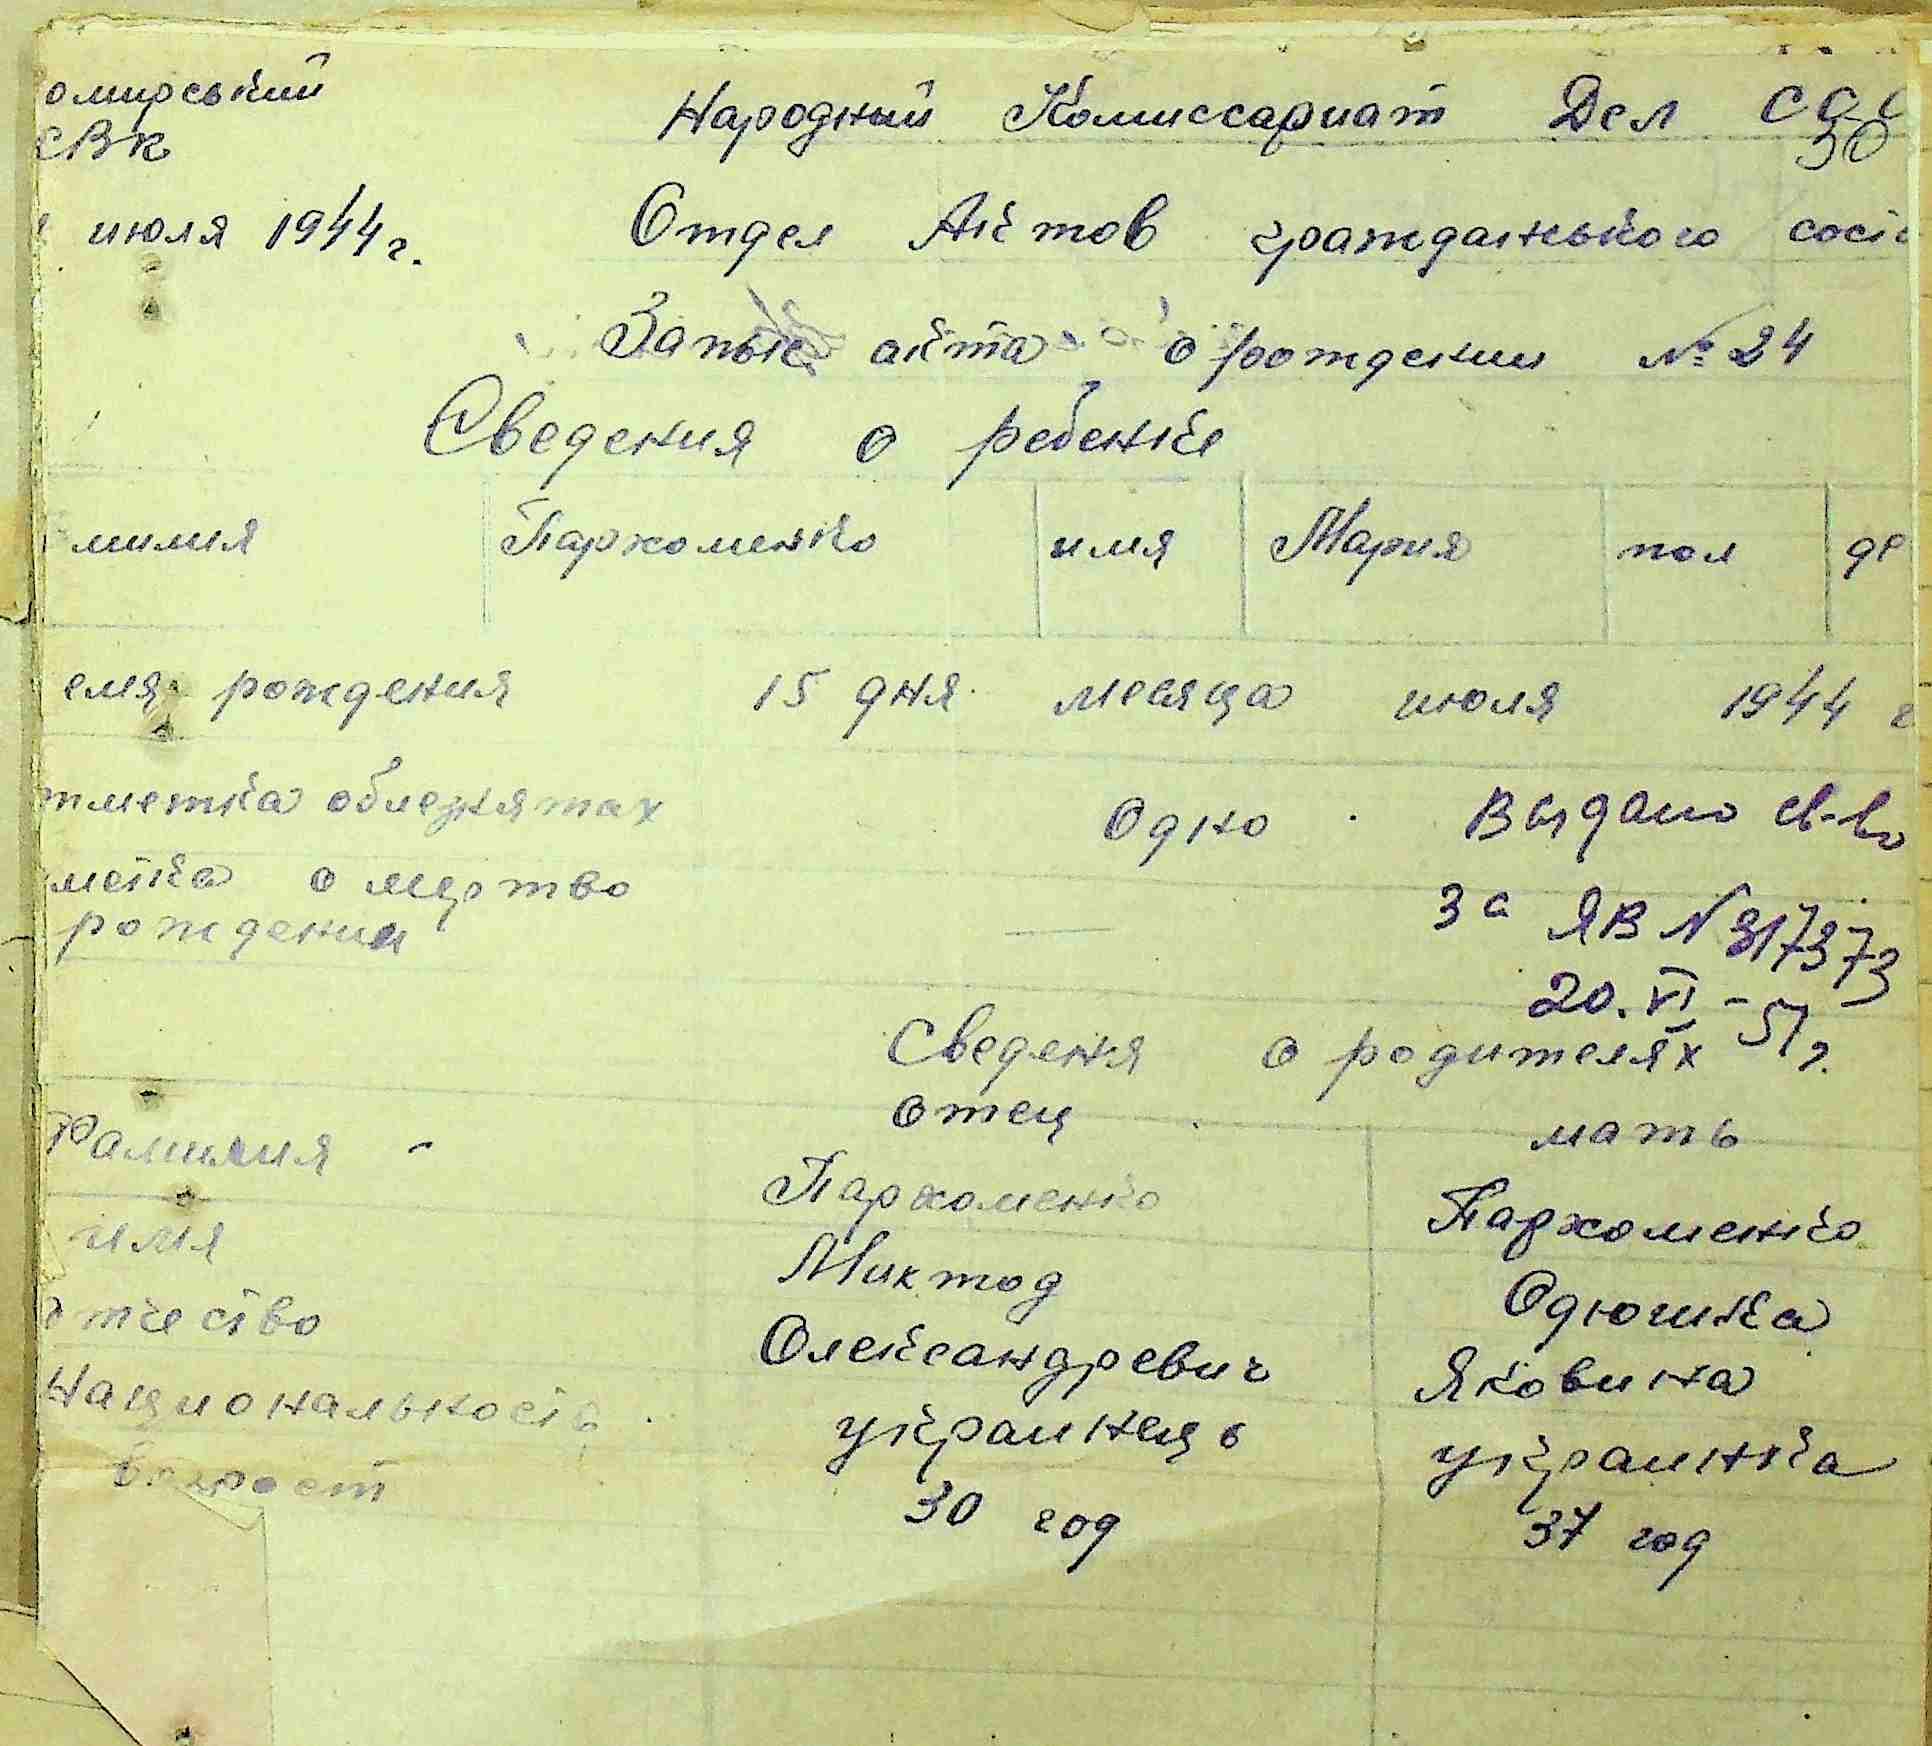 омирський Народный Комиссариат Дел ССС
СВК 30
июля 1944 г. Отдел Актов гражданького сост
Запис акта о рождении № 24
Сведения о ребенке
милия Пархоменко имя Мария пол де
емя рождения 15 дня месяца июля 1944 г
тметка облезнятах Одно Выдано св-во
метка о мертво за ЯВ N 317373
рождении — 20.VI-51 г.
Сведеня о родителях
отец мать
Фамилия - Пархоменко Пархоменко
имя Миктод Одюшка
отчество Олександревич Яковина
Национальность украинець украинка
возраст 30 год 37 год